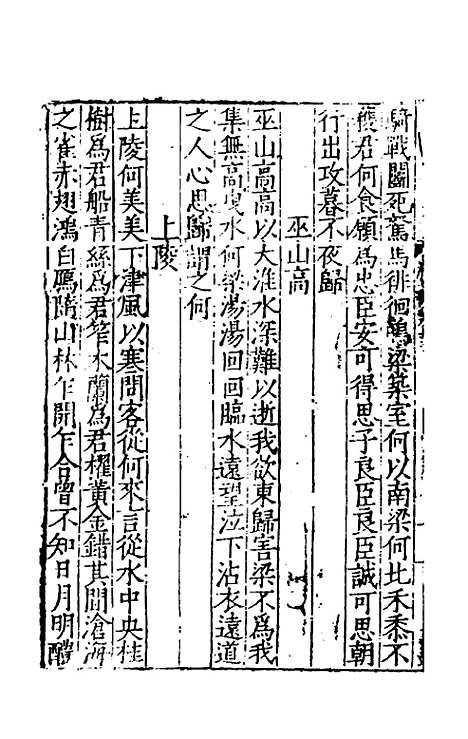 騎戰鬬死駑馬徘徊鳴梁築室何以南梁何北禾黍不
穫君何食願爲忠臣安可得思子良臣良臣誠可思朝
行出攻暮不夜歸
巫山高
巫山高高以大淮水深難以逝我欲東歸害梁不爲我
集無高曳水何梁湯湯回回臨水遠望泣下沾衣遠道
之人心思歸謂之何
上陵
上陵何美美下津風以寒問客從何來言從水中央桂
樹爲君船青絲爲君笮木蘭爲君櫂黃金錯其間滄海
之雀赤翅鴻白鴈隨山林乍開乍合曾不知日月明醴